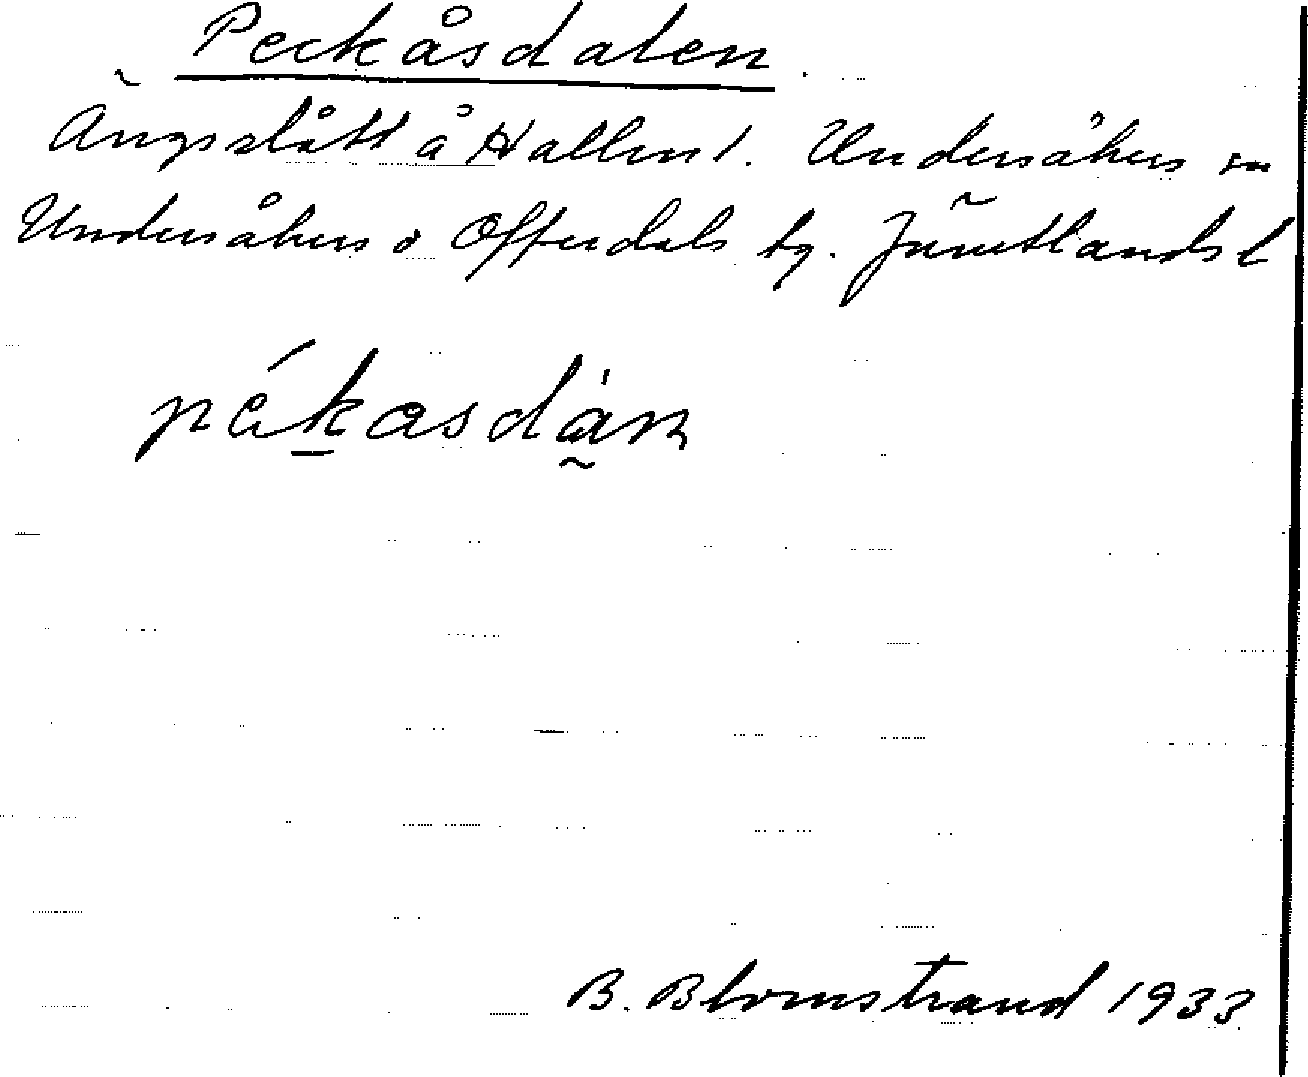 Peckåsdalen
Ängsslått å Hallen 1. Undersåkers sn
Undersåkers o Offerdals tg. Jämtlands l
pékasdàn
B. Blomstrand 1933